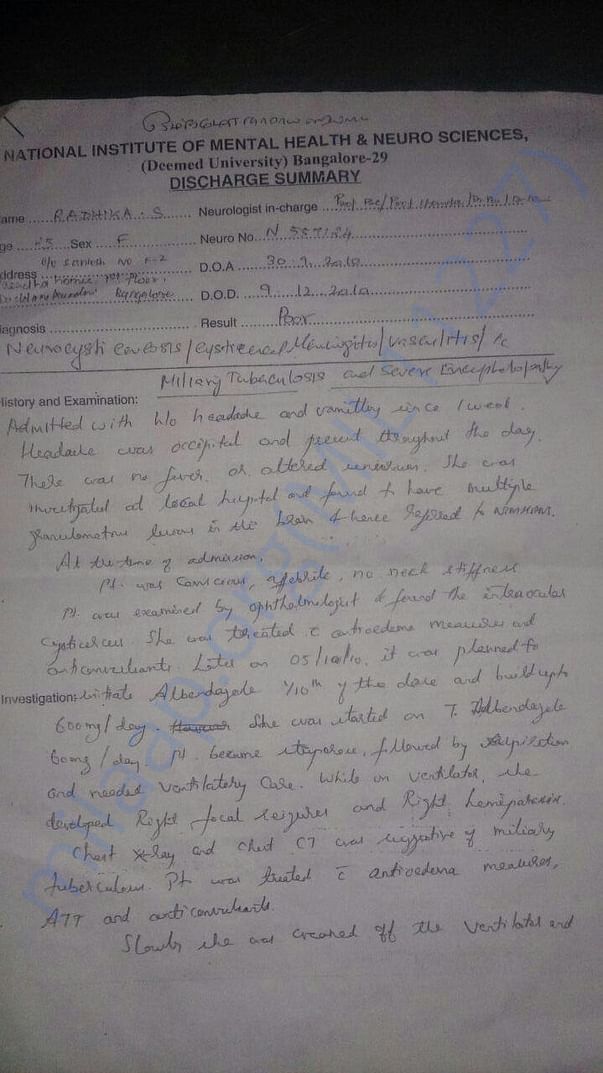 NATIONAL INSTITUTE OF MENTAL HEALTH & NEURO SCIENCES,
(Deemed University) Bangalore-29
DISCHARGE SUMMARY
ame RADHIKA . S Neurologist in-charge
ge 25 Sex F Neuro No. N
ddress No F-2 D.O.A 30.9.2010
Floor,
Bangalore D.O.D. 9.12.2010
iagnosis Result Poor
Neurocysticercosis / Cysticercal Meningitis / Vasculitis /
Miliary Tuberculosis and Severe Encephalopathy
History and Examination:
Admitted with h/o headache and vomitting since 1 week.
Headache was occipital and present throughout the day.
There was no fever or altered sensorium. She was
investigated at local hospital and found to have multiple
granulomatous lesions in the brain & hence referred to NIMHANS.
At the time of admission,
Pt. was conscious, afebrile, no neck stiffness
Pt. was examined by ophthalmologist & found the intraocular
cysticercus. She was treated c antioedema measures and
anticonvulsants. Later on 05/10/10, it was planned to
Investigation: initiate Albendazole 1/10th of the dose and build upto
600mg/day. She was started on T. Albendazole
60mg/day. Pt. became stuporous, followed by
and needed ventilatory care. While on ventilator, she
developed Right focal seizures and Right hemiparesis.
Chest X-Ray and Chest CT was suggestive of miliary
tuberculosis. Pt was treated c antioedema measures,
ATT and anticonvulsants.
Slowly she was weaned off the ventilator and
milaap.org(MIL-11227)